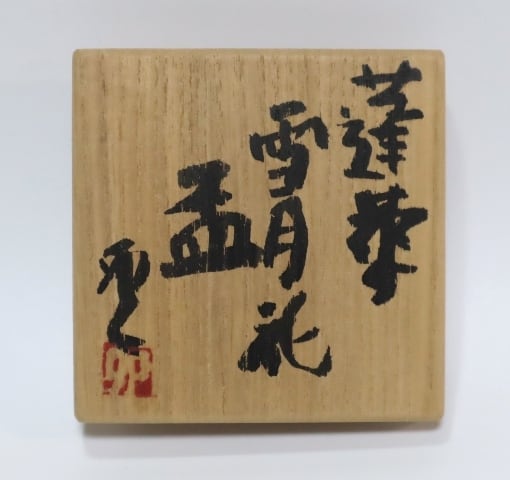 蓬莱
雪月花
盃
卯